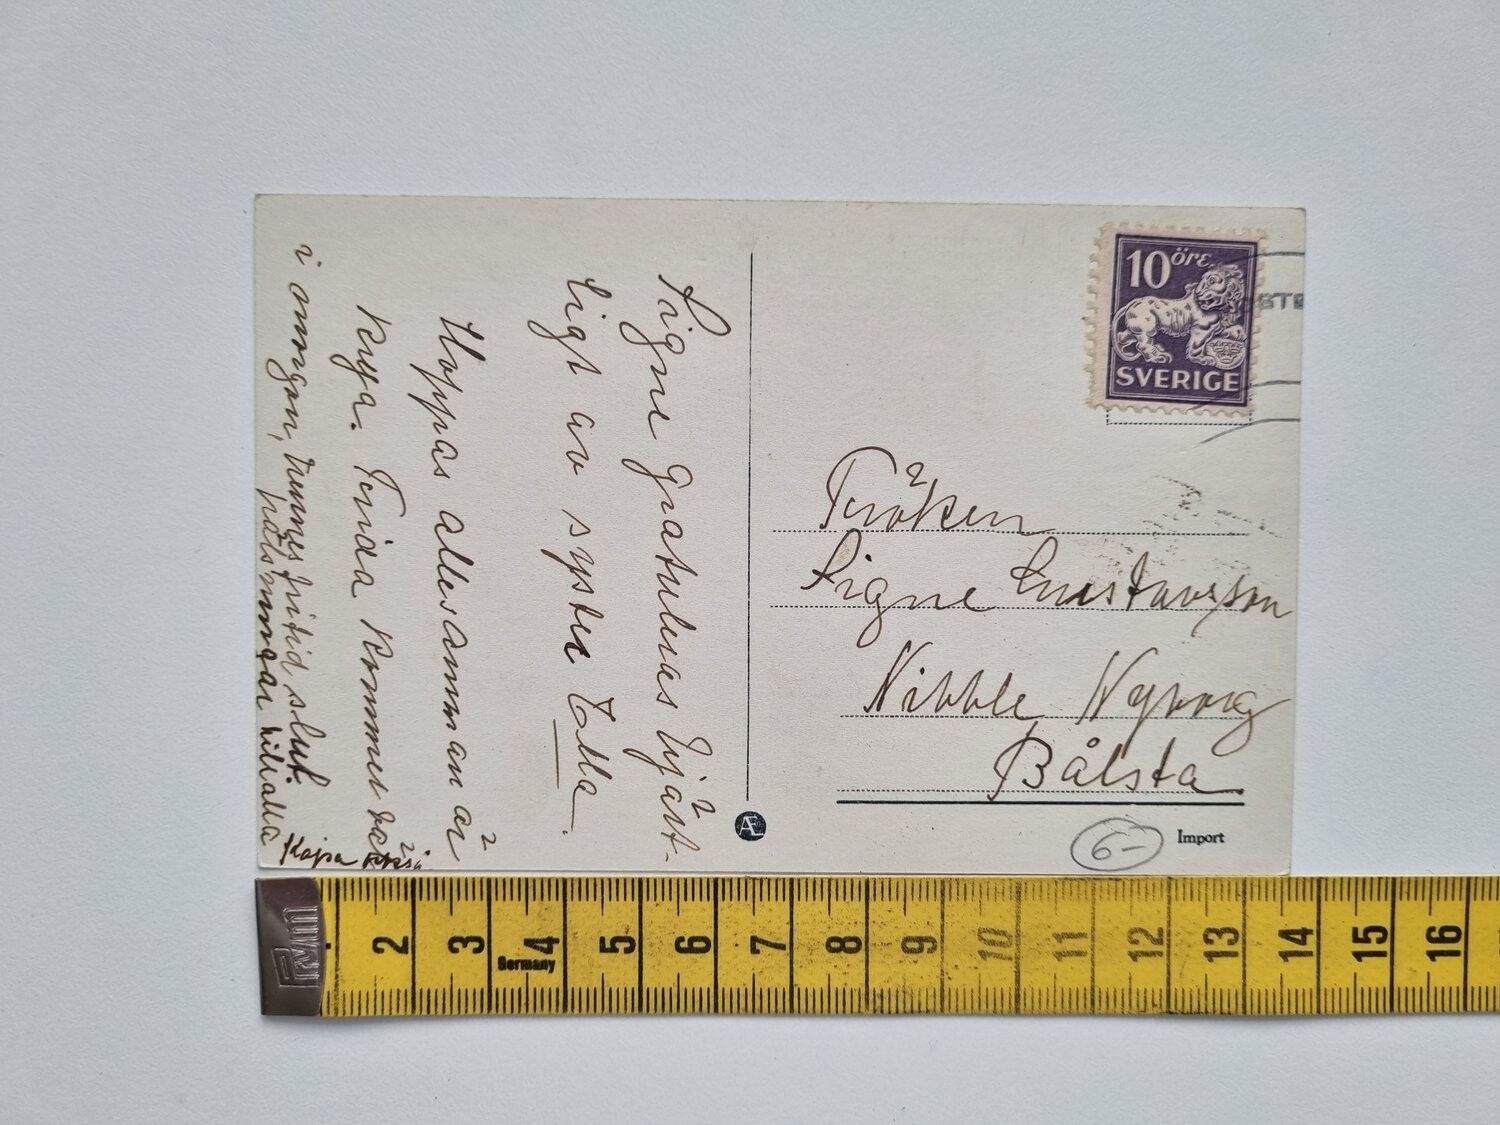 Signe Gratuleras hjärt-
ligt av syster Ella.
Hoppas allesamman är
krya. Frida kommer
i morgon, hennes fritid slut.
hälsningar till alla
Kajsa också
10 öre
SVERIGE
STE
Fröken
Signe Gustavsson
Nibble Nyborg
Bålsta
6-
Import
Æ
PWM
Germany
2 3 4 5 6 7 8 9 10 11 12 13 14 15 16